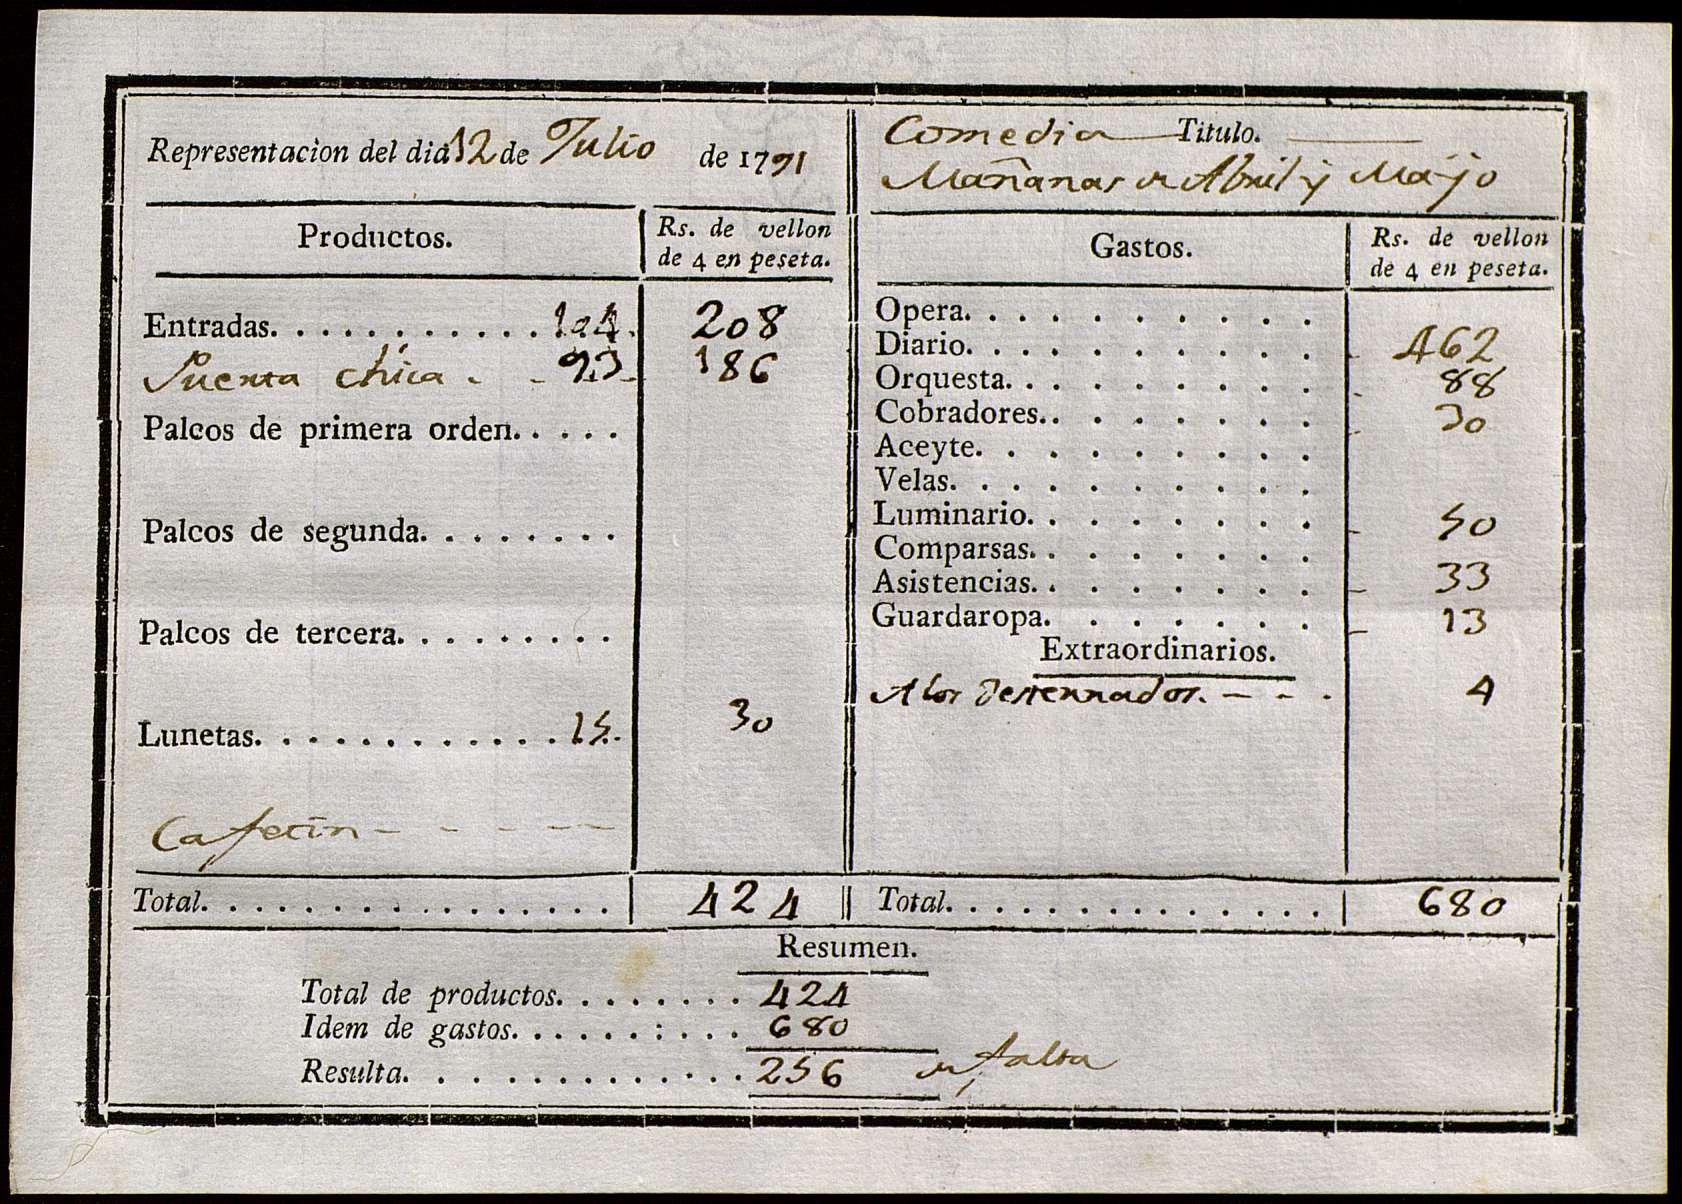 Representacion del dia 12 de Julio de 1791
Productos.
Rs. de vellon
de 4 en peseta.
Entradas. . . . . . . . . . . 104. 208
Puerta chica . . . 93 186
Palcos de primera orden. . . . .
Palcos de segunda. . . . . . . .
Palcos de tercera. . . . . . . . .
Lunetas. . . . . . . . . . . . . 15. 30
Cafetin - - - - -
Total. . . . . . . . . . . . . . . . 424
Comedia Titulo.
Mañanas de Abril y Mayo
Gastos.
Rs. de vellon
de 4 en peseta.
Opera. . . . . . . . . .
Diario. . . . . . . . . . 462
Orquesta. . . . . . . . . 88
Cobradores. . . . . . . . 30
Aceyte. . . . . . . . . .
Velas. . . . . . . . . .
Luminario. . . . . . . . 50
Comparsas. . . . . . . .
Asistencias. . . . . . . . 33
Guardaropa. . . . . . . 13
Extraordinarios.
A los - - . 4
Total. . . . . . . . . . . . . . 680
Resumen.
Total de productos. . . . . . . . 424
Idem de gastos. . . . . : . . . 680
Resulta. . . . . . . . . . . . . 256 de falta